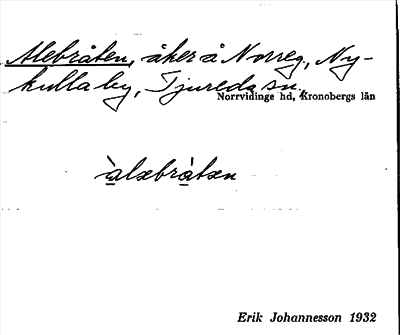 Alebråten, åker å Norreg., Ny-
kulla by, Tjureda sn.,
Norrvidinge hd, Kronobergs län
àlebràten
Erik Johannesson 1932